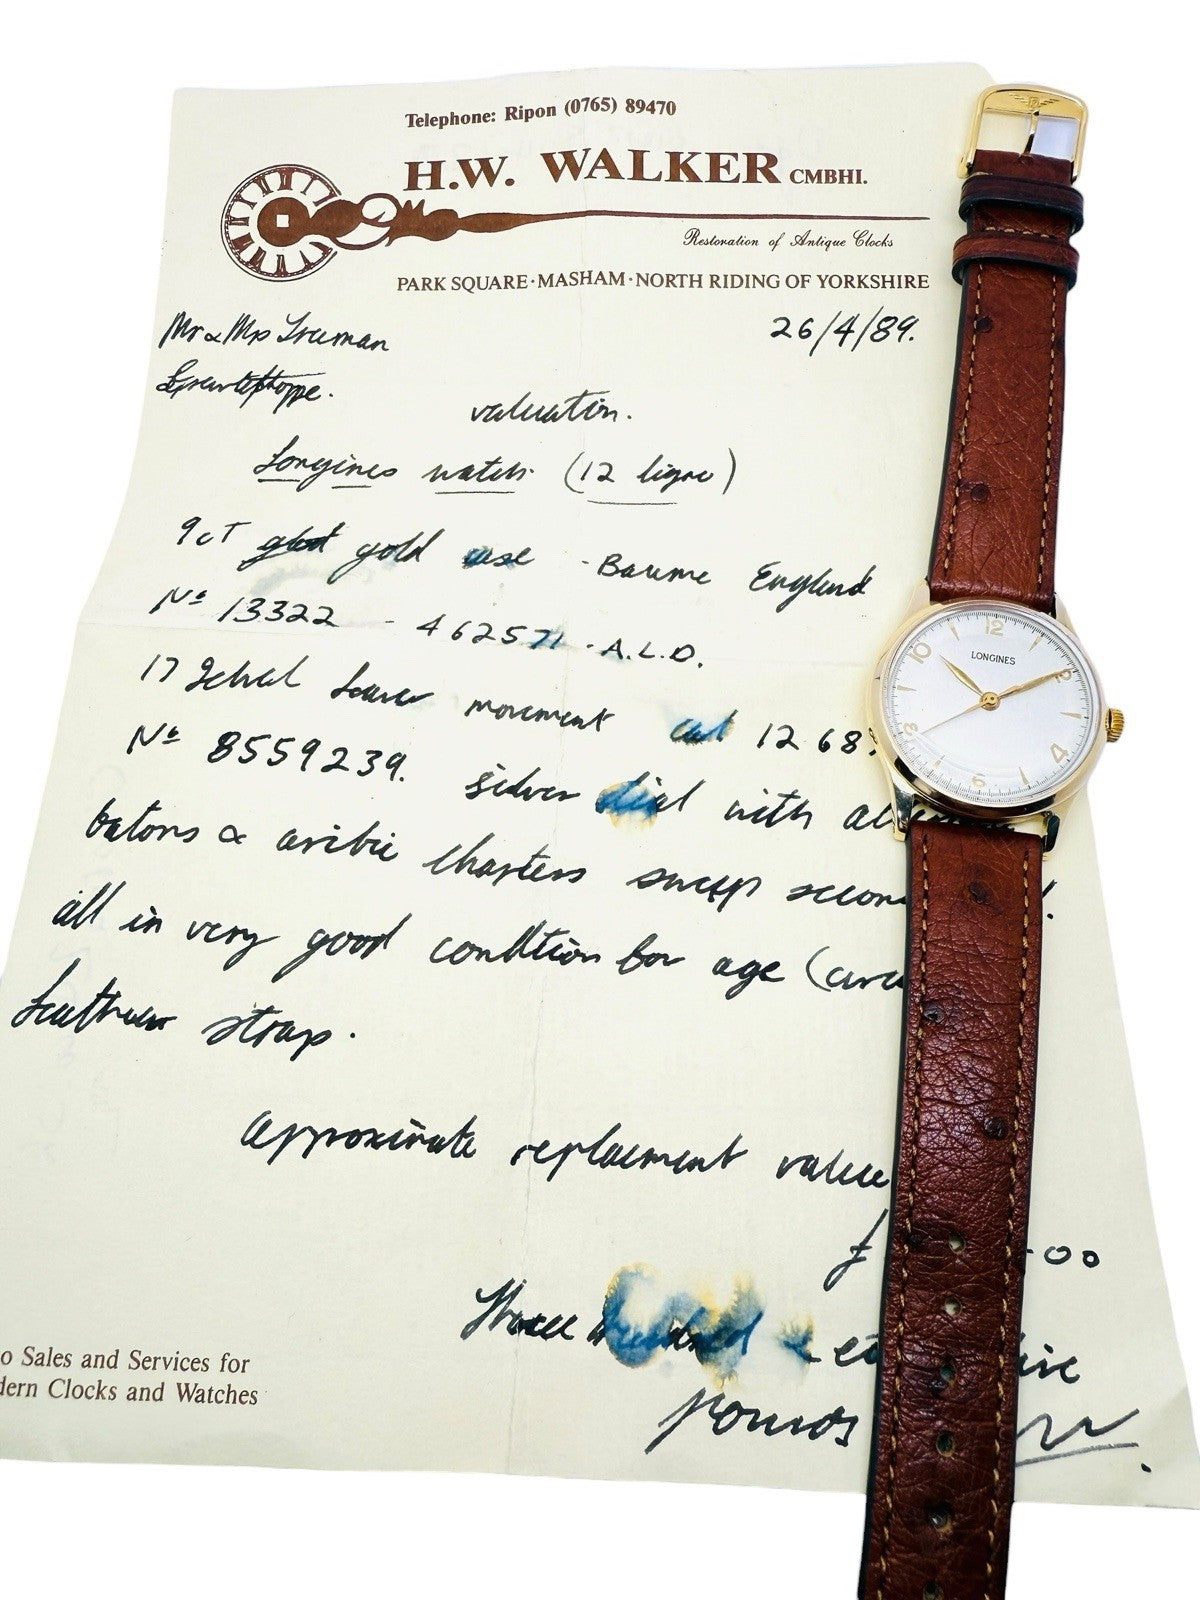 Telephone: Ripon (0765) 89470
H.W. WALKER CMBHI.
Restoration of Antique Clocks
PARK SQUARE·MASHAM·NORTH RIDING OF YORKSHIRE
26/4/89.
Mr & Mrs Truman
valuation.
Longines watch (12 ligne)
9cT gold case - Baume England
Nº 13322 - 462571 - A.L.D.
17 Jewel Lever movement cal 12.68
Nº 8559239. silver dial with
batons & aribic sweep
all in very good condition for age (circa
Leather strap.
approximate replacment value
£ 00
Three hundred &
pounds
o Sales and Services for
dern Clocks and Watches
LONGINES
12
2
4
6
8
10